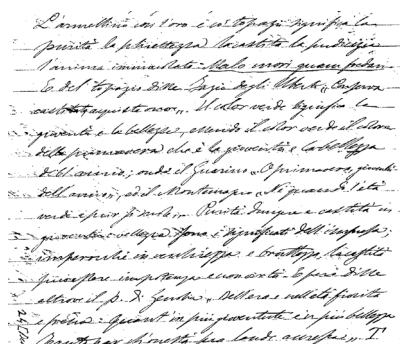 L'armellino con l'oro e co' topazi significa la
purità la schiettezza la castità la pudicizia
l'anima immacolata Malo mori quam fœdari
E del topazio disse Fazio degli Uberti "Conserva
castità, acquista
Il color verde significa la
gioventù e la bellezza, essendo il color verde il colore
della primavera che è la gioventù e la bellezza
dell'anno; onde il Guarino "O primavera, gioventù
dell'anno", ed il Montemagno "Ne quando l'età
verde è più
Purità dunque e castità in
gioventù e bellezza sono i significati dell'impresa;
imperocché in vecchiezza e bruttezza, la castità
può essere impotenza e non virtù. E però disse
altrove il p. di
"Bella era e nell'età fiorita
e fresca: Quanto in più gioventute e in più bellezza
Tanto par ch'onestà sua laude accresca". I